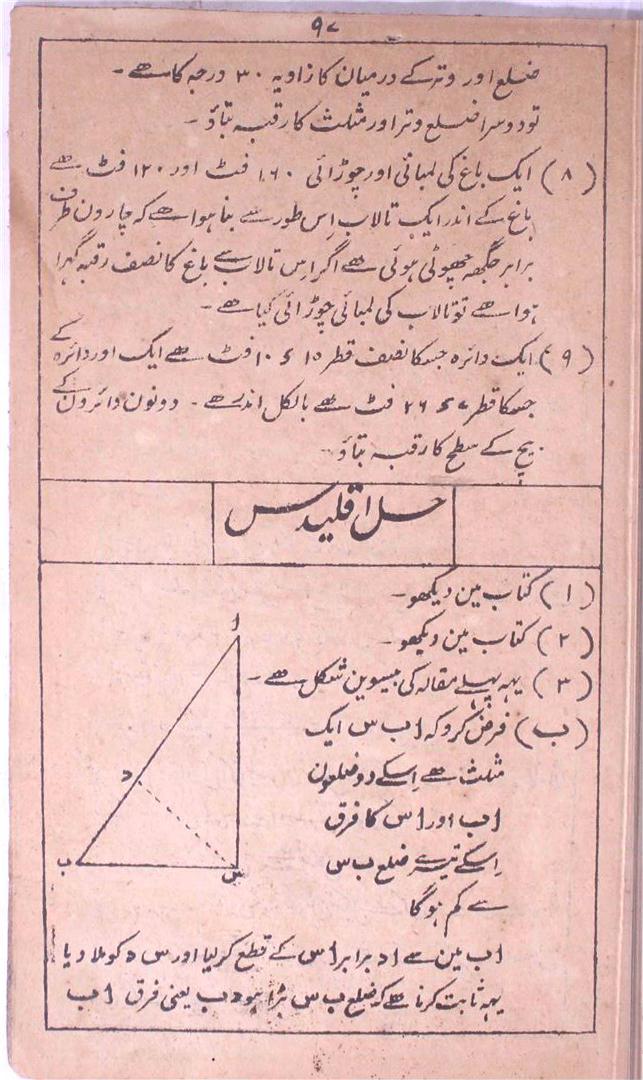 ۹۷
ضلع اور وتر کے درمیان کا زاویہ ۳۰ درجہ کا ھے ۔
تو دوسرا ضلع وتر اور مثلث کا رقبہ بتاؤ ۔
(۸) ایک باغ کی لمبائی اور چوڑائی ۱۶۰ فٹ اور ۱۲۰ فٹ ھے
باغ کے اندر ایک تالاب اِس طور سے بنا ہوا ھے کہ چارون طرف
برابر جگھہ چھوٹی ہوئی ھے اگر اِس تالاب سے باغ کا نصف رقبہ گہرا
ہوا ھے تو تالاب کی لمبائی چوڑائی کیا ھے ۔
(۹) ایک دائرہ جسکا نصف قطر ۱۵ ء ۱۰ فٹ ھے ایک اور دائرہ کے
جسکا قطر ۷ ء ۲۶ فٹ ھے بالکل اندر ھے ۔ دونون دائرون کے
بیچ کے سطح کا رقبہ بتاؤ ۔
حل اقلیدس
(۱) کتاب مین دیکھو ۔
(۲) کتاب مین دیکھو ۔
(۳) یہہ پہلے مقالہ کی بیسوین شکل ھے ۔
(ب) فرض کرو کہ ا ب س ایک
مثلث ھے اِسکے دو ضلعون
ا ب اور ا س کا فرق
اِسکے تیسرے ضلع ب س
سے کم ہوگا
ا
د
ب
س
ا ب مین سے ا د برابر ا س کے قطع کر لیا اور س د کو ملا دیا
یہہ ثابت کرنا ھے کہ ضلع ب س بڑا ہو د ب یعنی فرق ا ب